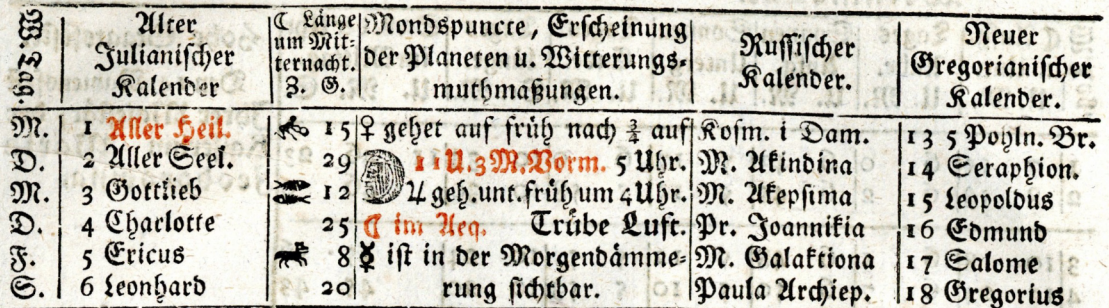 W. Tag. | Alter Julianischer Kalender | ☾ Länge um Mitternacht. Z. G. | Mondspuncte, Erscheinung der Planeten u. Witterungsmuthmaßungen. | Russischer Kalender. | Neuer Gregorianischer Kalender.
M. 1 Aller Heil. 15 ♀ gehet auf früh nach ¾ auf Kosm. i Dam. 13 5 Pohln. Br.
D. 2 Aller Seel. 29 11U.3M.Vorm. 5 Uhr. M. Akindina 14 Seraphion.
M. 3 Gottlieb ♓ 12 ♃ geh.unt.früh um 4Uhr. M. Akepsima 15 Leopoldus
D. 4 Charlotte 25 ☾ im Aeq. Trübe Luft. Pr. Joannikia 16 Edmund
F. 5 Ericus 8 ☿ ist in der Morgendämme- M. Galaktiona 17 Salome
S. 6 Leonhard 20 rung sichtbar. Paula Archiep. 18 Gregorius